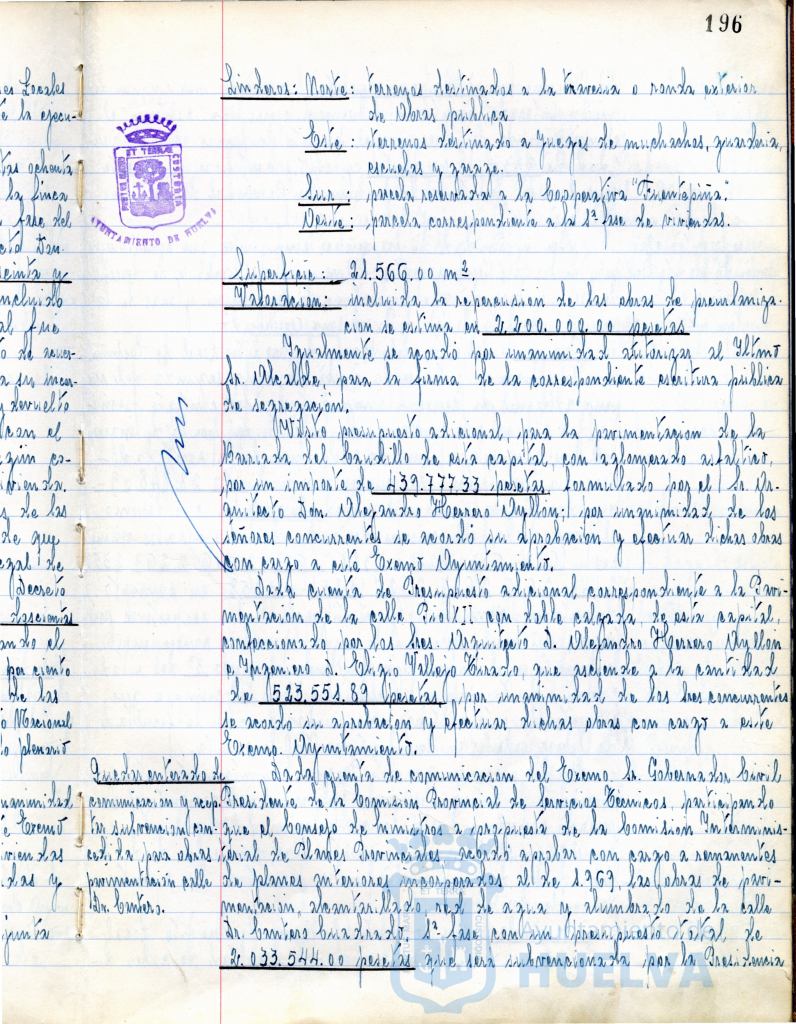 196
Linderos: Norte: terrenos destinados a la travesia o ronda exterior
de Obras pública
Este: terrenos destinado a Juegos de muchachos, guarderia,
escuelas y garage.
Sur: parcela reservada a la Cooperativa "Fuentepiña".
Oeste: parcela correspondiente a la 1ª fase de viviendas.
Superficie: 21.566.00 m².
Valoración: incluida la repercusión de las obras de preurbaniza-
cion se estima en 2.200.000.00 pesetas
Igualmente se acordó por unanimidad autorizar al Iltmo
Sr. Alcalde, para la firma de la correspondiente escritura pública
de segregación.
Visto presupuesto adicional, para la pavimentación de la
Barriada del Caudillo de esta capital, con aglomerado asfaltico,
por un importe de 439.777.33 pesetas formulado por el Sr. Ar-
quitecto Don Alejandro Herrero Ayllón; por unanimidad de los
señores concurrentes se acordó su aprobación y efectuar dichas obras
con cargo a este Excmo Ayuntamiento.
Dada cuenta de Presupuesto adicional correspondiente a la Pavi-
mentación de la calle Pio XII con doble calzada, de esta capital,
confeccionado por los Sres. Arquitecto D. Alejandro Herrero Ayllón
e Ingeniero D. Eligio Vallejo Tirado, que asciende a la cantidad
de 523.551.89 pesetas, por unanimidad de los Sres concurrentes
se acordó su aprobación y efectuar dichas obras con cargo a este
Excmo. Ayuntamiento.
Quedar enterado de
comunicación y acep-
tar subvención con-
cedida para obras
pavimentación calle
Dr. Cantero.
Dada cuenta de comunicación del Excmo. Sr. Gobernador Civil
Presidente de la Comisión Provincial de Servicios Tecnicos, participando
que el Consejo de Ministros a propuesta de la Comisión Interminis-
terial de Planes Provinciales acordó aprobar con cargo a remanentes
de planes anteriores incorporados al de 1.969, las obras de pavi-
mentación, alcantarillado red de agua y alumbrado de la calle
Dr. Cantero Cuadrado, 1ª fase con un presupuesto total de
2.033.544.00 pesetas que será subvencionada por la Presidencia
AYUNTAMIENTO DE HUELVA
Ayuntamiento de
HUELVA